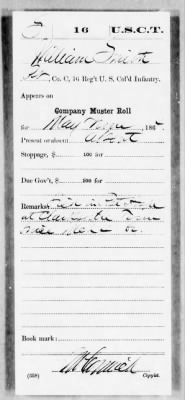 S | 16 | U.S.C.T.
William Smith
Co. C, 16 Reg't U. S. Col'd Infantry.
Appears on
Company Muster Roll
for May & June, 186
Present or absent Absent
Stoppage, $ 100 for
Due Gov't, $ 100 for
Remarks: Sick in
at Clarksville Tenn
since
Book mark:
(358) Copyist.